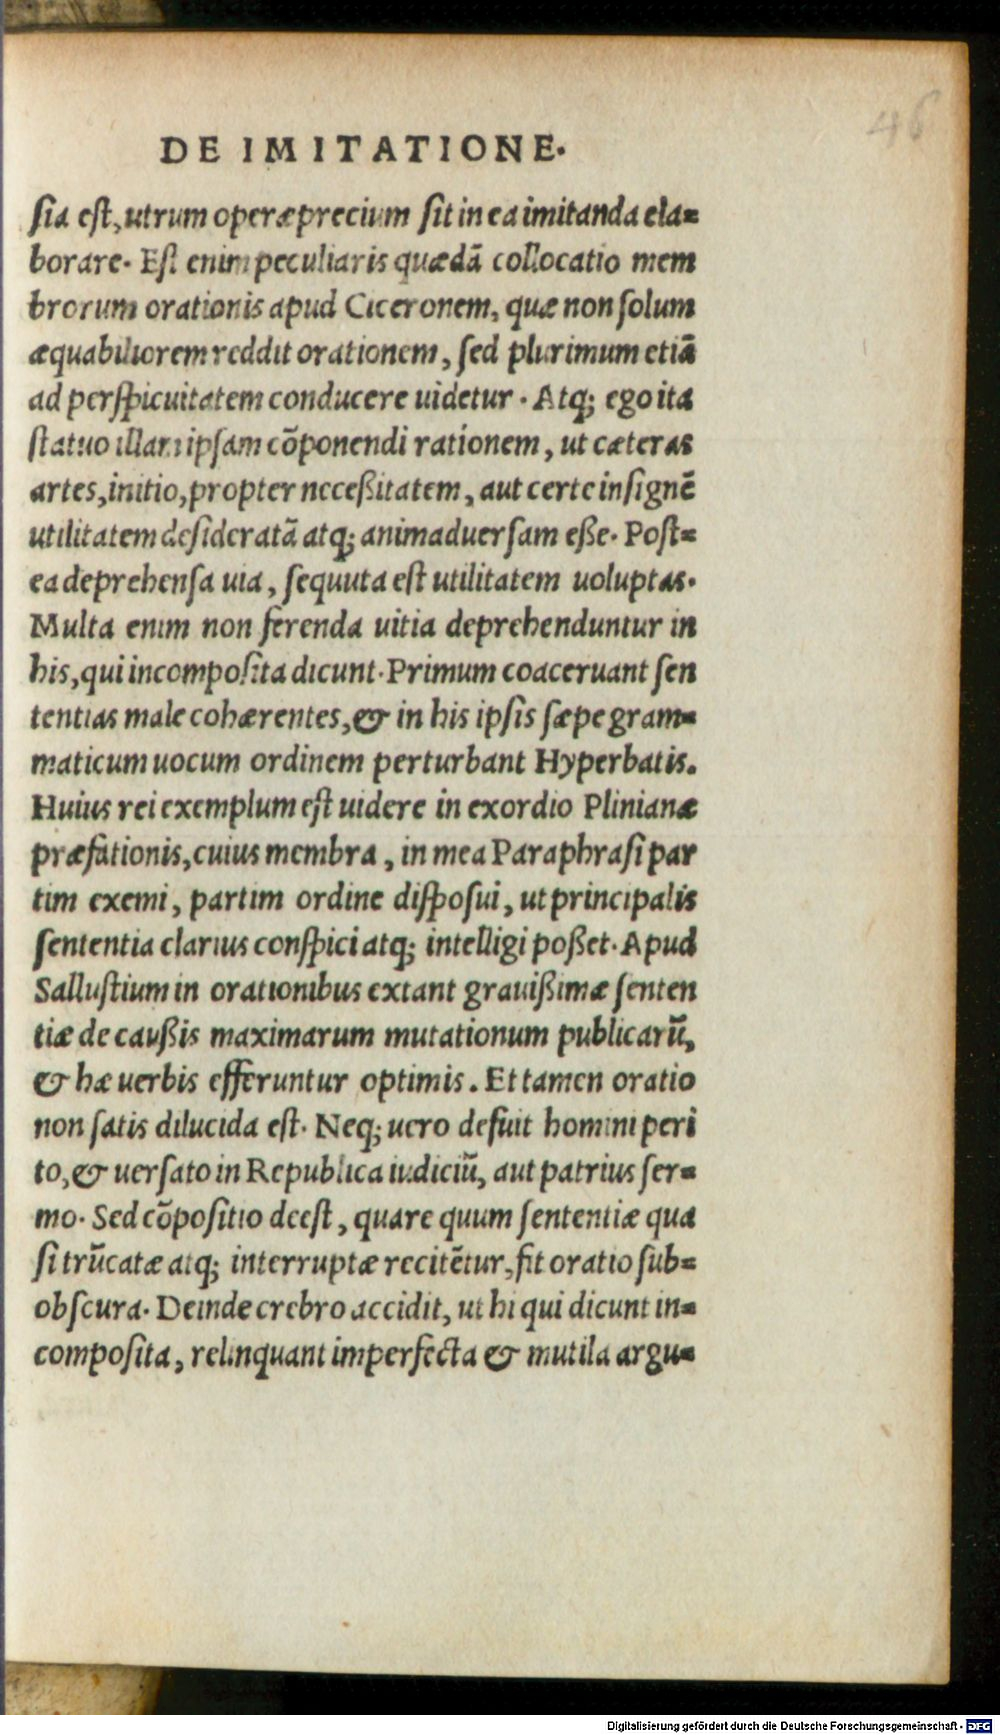 46
DE IMITATIONE.
sia est, utrum operæprecium sit in ea imitanda ela=
borare. Est enim peculiaris quædã collocatio mem
brorum orationis apud Ciceronem, quæ non solum
æquabiliorem reddit orationem, sed plurimum etiã
ad perspicuitatem conducere uidetur. Atq; ego ita
statuo illam ipsam cõponendi rationem, ut cæteras
artes, initio, propter neceßitatem, aut certe insignẽ
utilitatem desideratã atq; animaduersam eße. Post=
ea deprehensa uia, sequuta est utilitatem uoluptas.
Multa enim non ferenda uitia deprehenduntur in
his, qui incomposita dicunt. Primum coaceruant sen
tentias male cohærentes, & in his ipsis sæpe gram=
maticum uocum ordinem perturbant Hyperbatis.
Huius rei exemplum est uidere in exordio Plinianæ
præfationis, cuius membra, in mea Paraphrasi par
tim exemi, partim ordine disposui, ut principalis
sententia clarius conspici atq; intelligi poßet. Apud
Sallustium in orationibus extant grauißimæ senten
tiæ de caußis maximarum mutationum publicarũ,
& hæ uerbis efferuntur optimis. Et tamen oratio
non satis dilucida est. Neq; uero defuit homini peri
to, & uersato in Republica iudiciũ, aut patrius ser=
mo. Sed cõpositio deest, quare quum sententiæ qua
si trũcatæ atq; interruptæ recitẽtur, fit oratio sub=
obscura. Deinde crebro accidit, ut hi qui dicunt in=
composita, relinquant imperfecta & mutila argu=
Digitalisierung gefördert durch die Deutsche Forschungsgemeinschaft - DFG